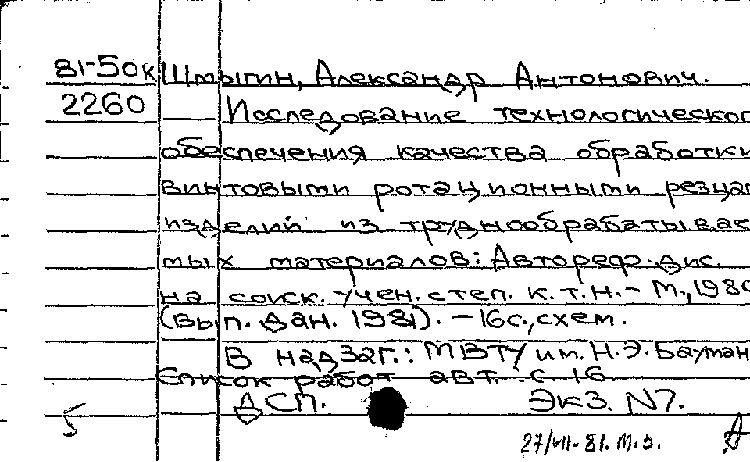 81-50к Шмыгин, Александр Антонович.
2260 Исследование технологическог
обеспечения качества обработки
винтовыми ротационными резца
изделий из труднообрабатывае
мых материалов: Автореф. дис.
на соиск. учен. степ. к.т.н. - М., 1980
(Вып. дан. 1981). - 16с., схем.
В надзаг.: МВТУ им. Н.Э. Бауман
Список работ авт. с 16
ДСП. Экз. N7.
5
27/VII-81. М.З.